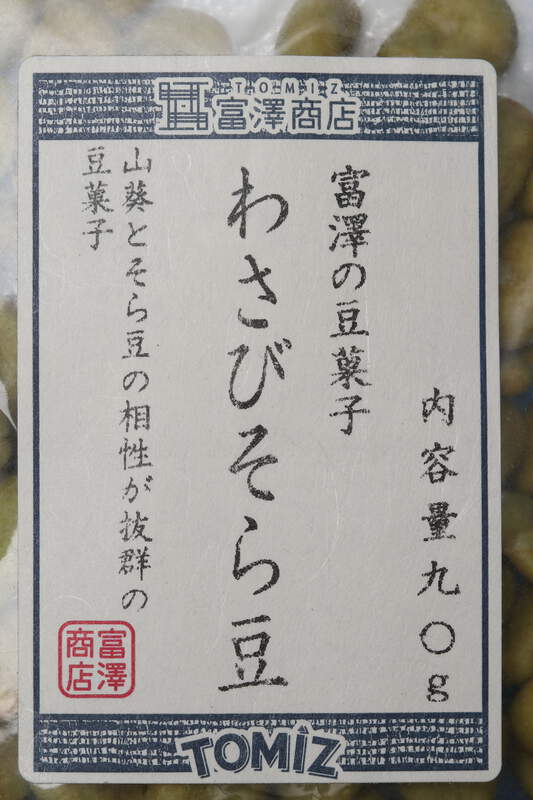 TOMIZ
富澤商店
内容量九〇g
富澤の豆菓子
わさびそら豆
山葵とそら豆の相性が抜群の
豆菓子
富澤
商店
TOMIZ